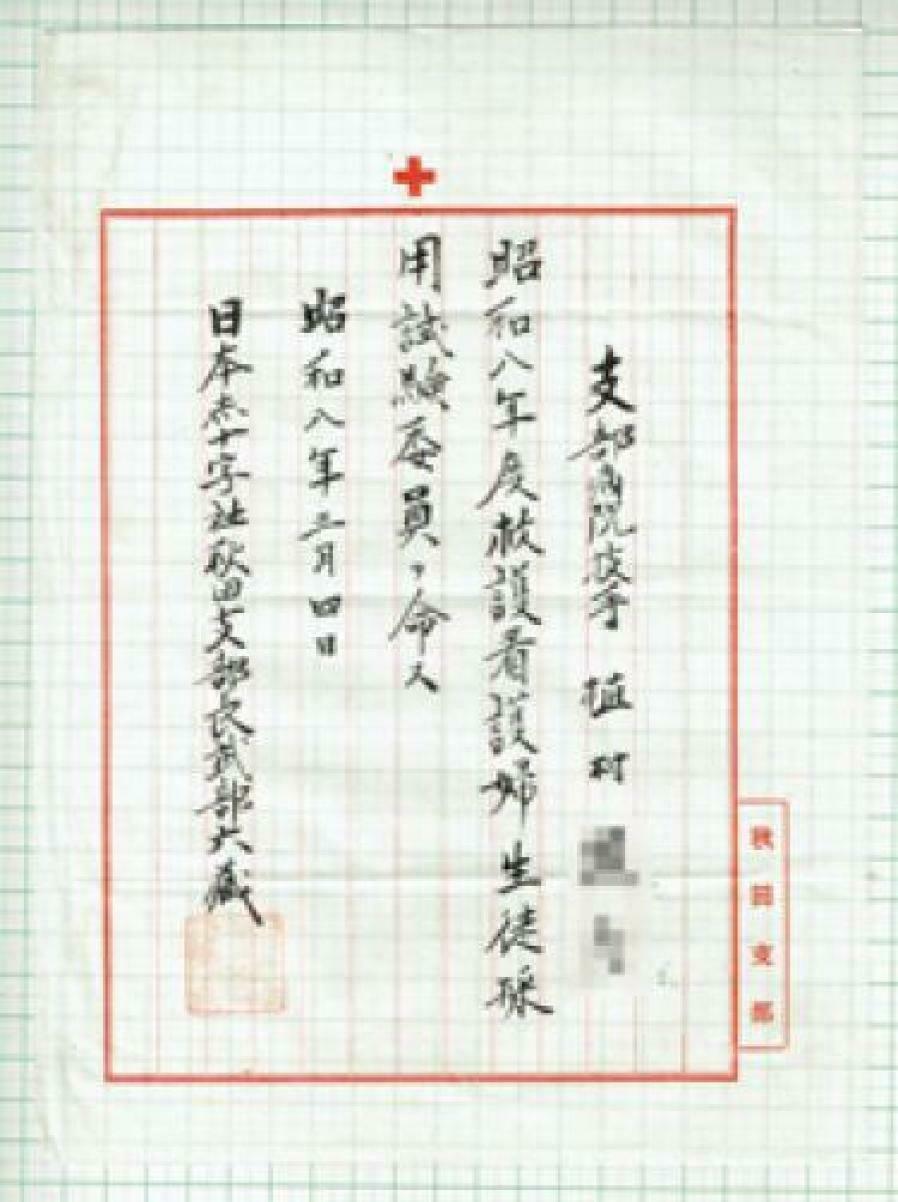 支部病院技手 植村
昭和八年度救護看護婦生徒採
用試験委員ヲ命ス
昭和八年三月四日
日本赤十字社秋田支部長武部六蔵
秋田支部